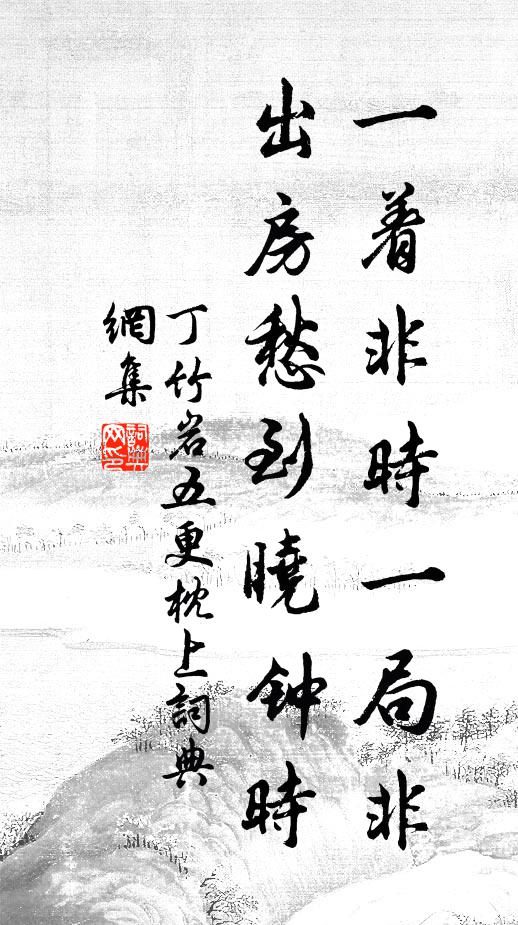 一着非時一局非
出房愁到曉钟時
丁竹岩五更枕上詞典
網集